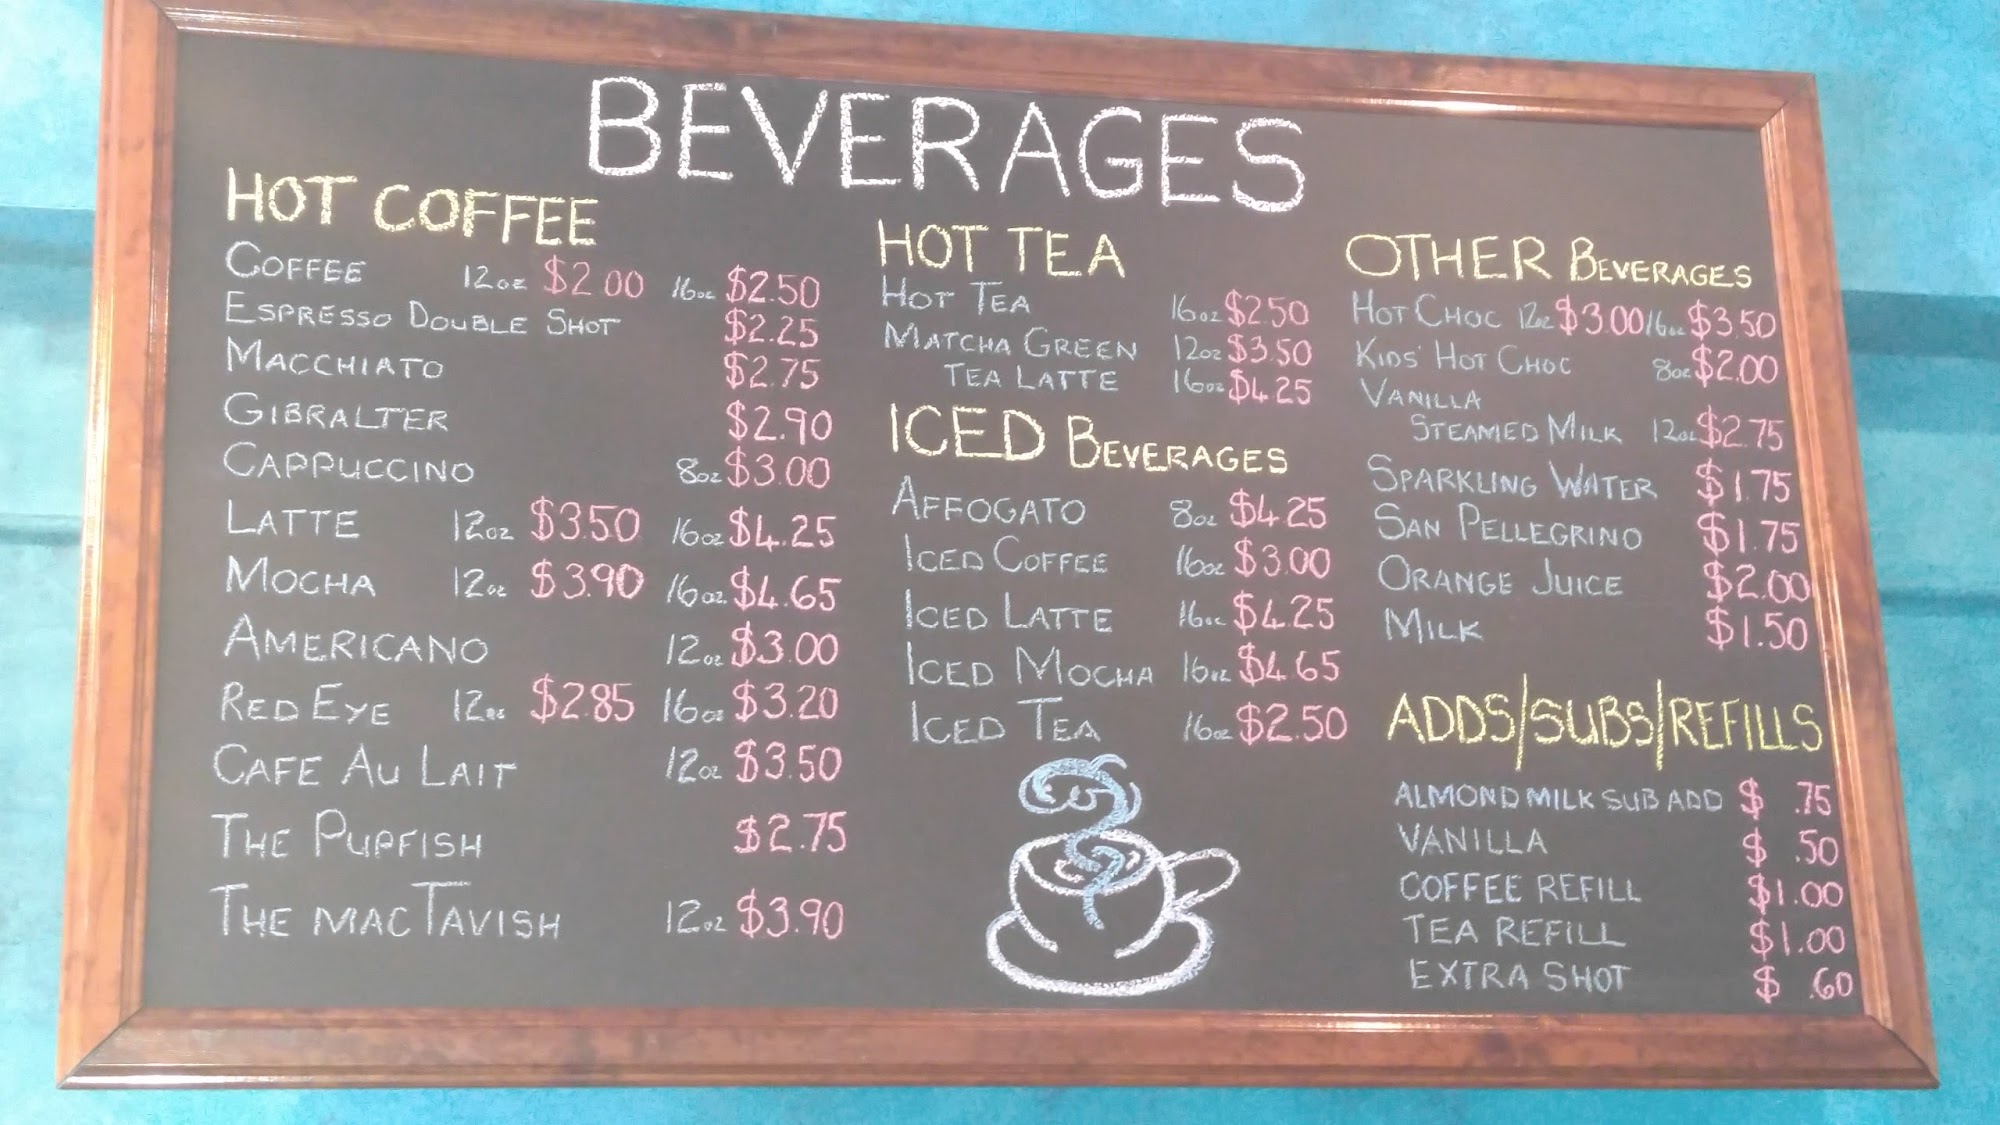 BEVERAGES
HOT COFFEE
COFFEE 12oz $2.00 16oz $2.50
ESPRESSO DOUBLE SHOT $2.25
MACCHIATO $2.75
GIBRALTER $2.90
CAPPUCCINO 8oz $3.00
LATTE 12oz $3.50 16oz $4.25
MOCHA 12oz $3.90 16oz $4.65
AMERICANO 12oz $3.00
RED EYE 12oz $2.85 16oz $3.20
CAFE AU LAIT 12oz $3.50
THE PUPFISH $2.75
THE MACTAVISH 12oz $3.90
HOT TEA
HOT TEA 16oz $2.50
MATCHA GREEN 12oz $3.50
TEA LATTE 16oz $4.25
ICED BEVERAGES
AFFOGATO 8oz $4.25
ICED COFFEE 16oz $3.00
ICED LATTE 16oz $4.25
ICED MOCHA 16oz $4.65
ICED TEA 16oz $2.50
OTHER BEVERAGES
HOT CHOC 12oz $3.00 16oz $3.50
KIDS' HOT CHOC 8oz $2.00
VANILLA
STEAMED MILK 12oz $2.75
SPARKLING WATER $1.75
SAN PELLEGRINO $1.75
ORANGE JUICE $2.00
MILK $1.50
ADDS/SUBS/REFILLS
ALMOND MILK SUB ADD $ .75
VANILLA $ .50
COFFEE REFILL $1.00
TEA REFILL $1.00
EXTRA SHOT $ .60